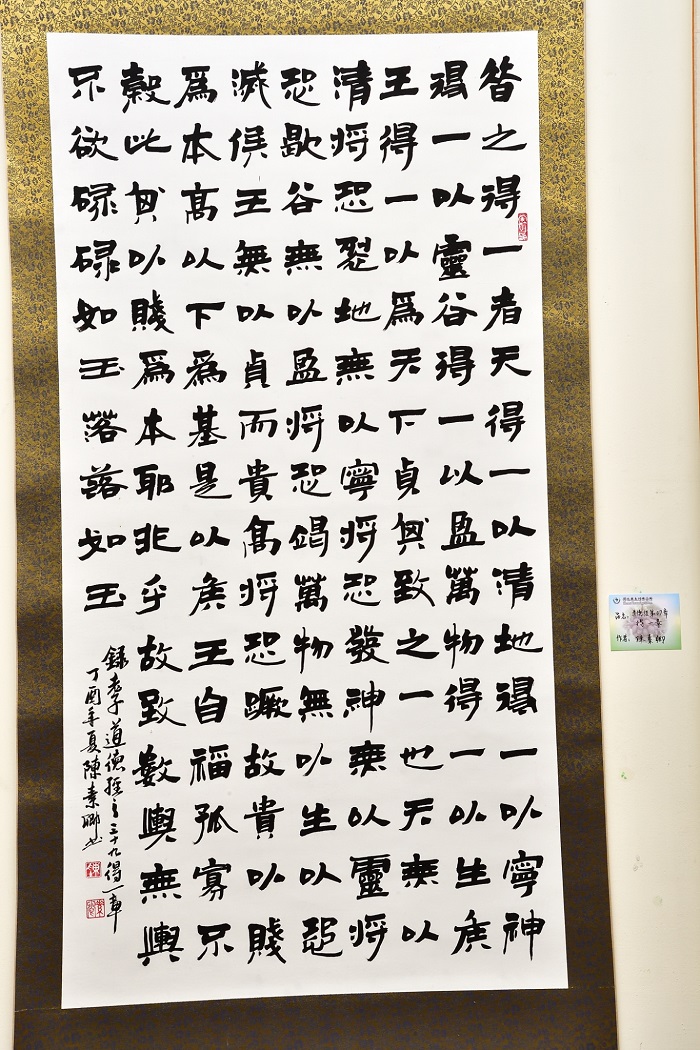 昔之得一者天得一以清地得一以寧神
得一以靈谷得一以盈萬物得一以生侯
王得一以爲天下貞其致之一也天無以
清將恐裂地無以寧將恐發神無以靈將
恐歇谷無以盈將恐竭萬物無以生以恐
滅侯王無以貞而貴高將恐蹶故貴以賤
爲本高以下爲基是以侯王自福孤寡不
穀此其以賤爲本耶非乎故致數輿無輿
不欲碌碌如玉落落如玉
錄老子道德經之三十九得一章
丁酉年夏陳素卿书
品名：道德經第39章
作者：陳素卿